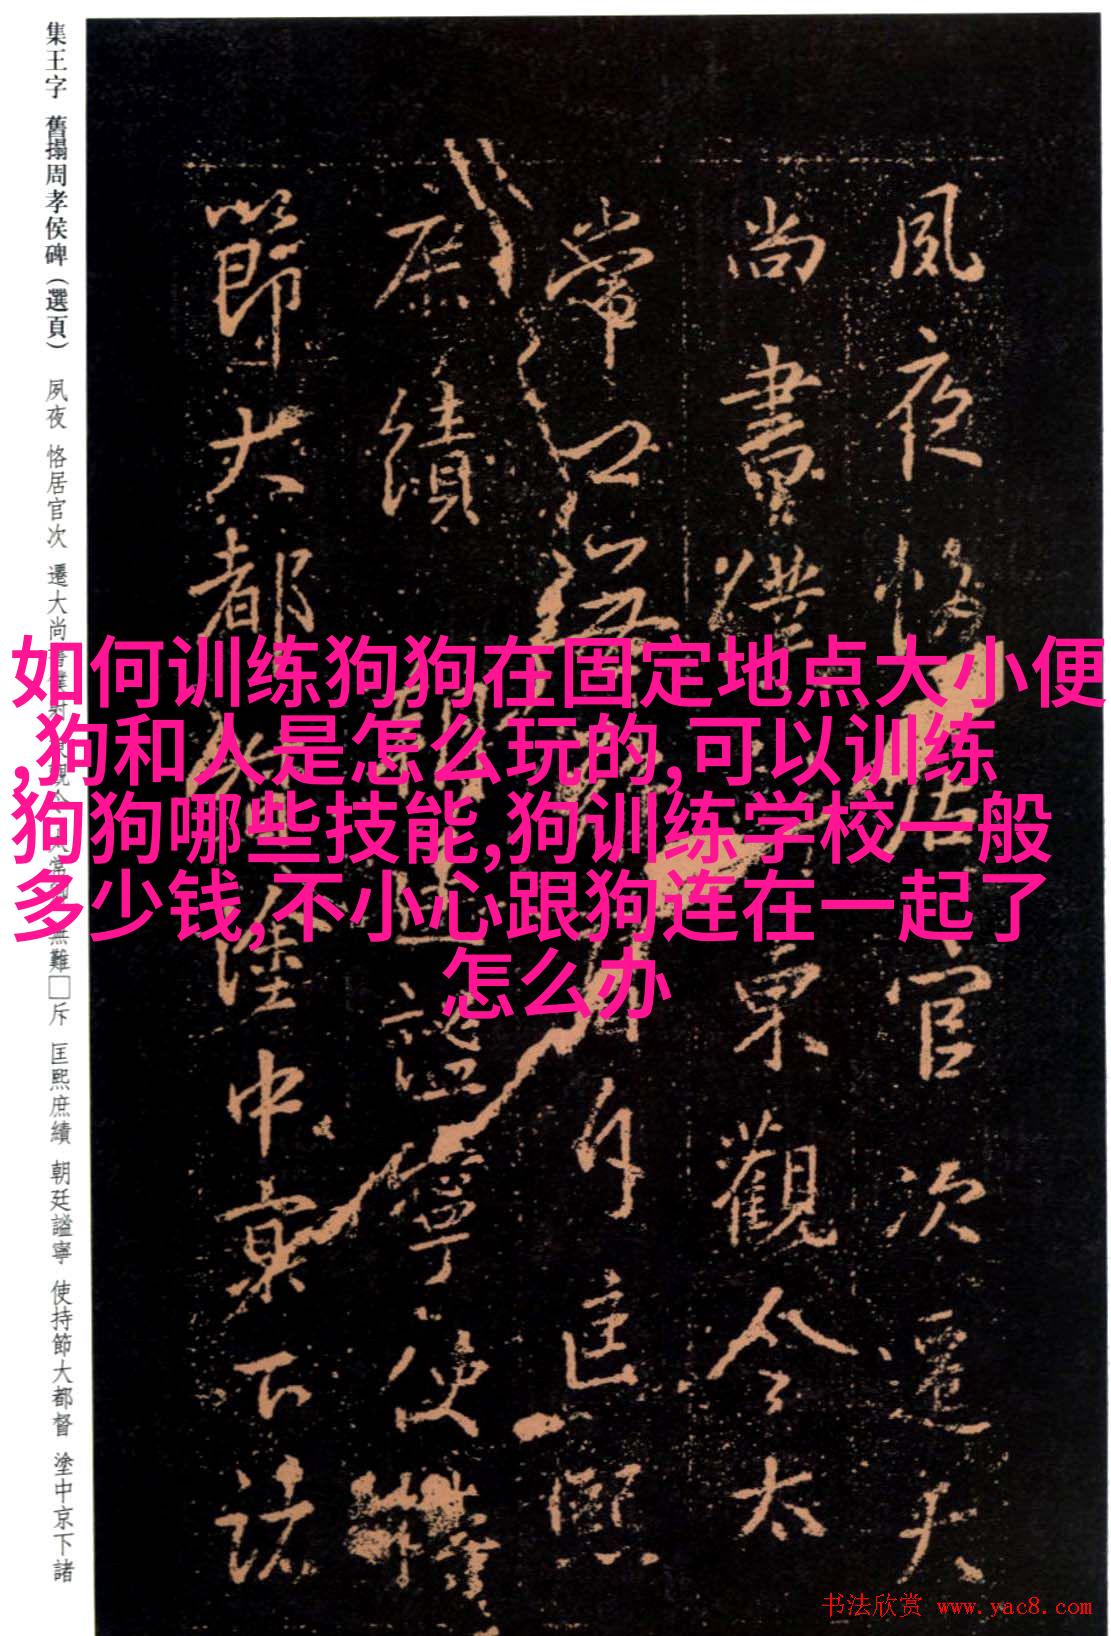 集王字 舊搨周孝侯碑（選頁） 夙夜 恪居官次 遷大尚
無難□斥 匡熙庶績 朝廷謚寧 使持節大都督 塗中京下諸
如何训练狗狗在固定地点大小便
,狗和人是怎么玩的,可以训练
狗狗哪些技能,狗训练学校一般
多少钱,不小心跟狗连在一起了
怎么办
夙夜恪居官次遷大
尚書僕東觀令太
常斥匡熙
庶績謚寧使持
節大都塗中京下諸
书法欣赏 www.yac8.com